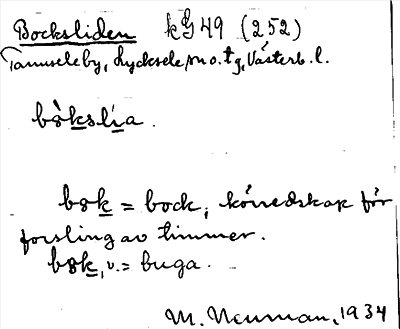 Bocksliden kG 49 (252)
Tannseleby, Lycksele sn o. tg, Västerb. l.
bòkslía.
bok = bock, körredskap för
forsling av timmer.
bok, v. = buga.
M. Neuman, 1934